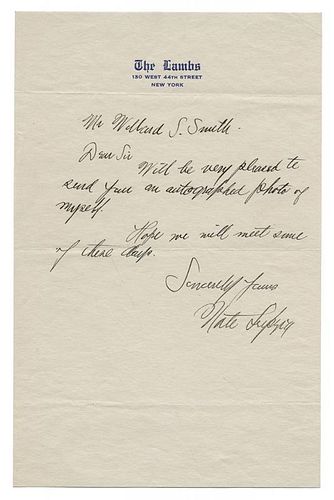 The Lambs
130 WEST 44TH STREET
NEW YORK
Mr Willard S. Smith.
Dear Sir
Will be very pleased to
send you an autographed photo of
myself.
Hope we will meet some
of these days.
Sincerely yours
Nate Leipzig